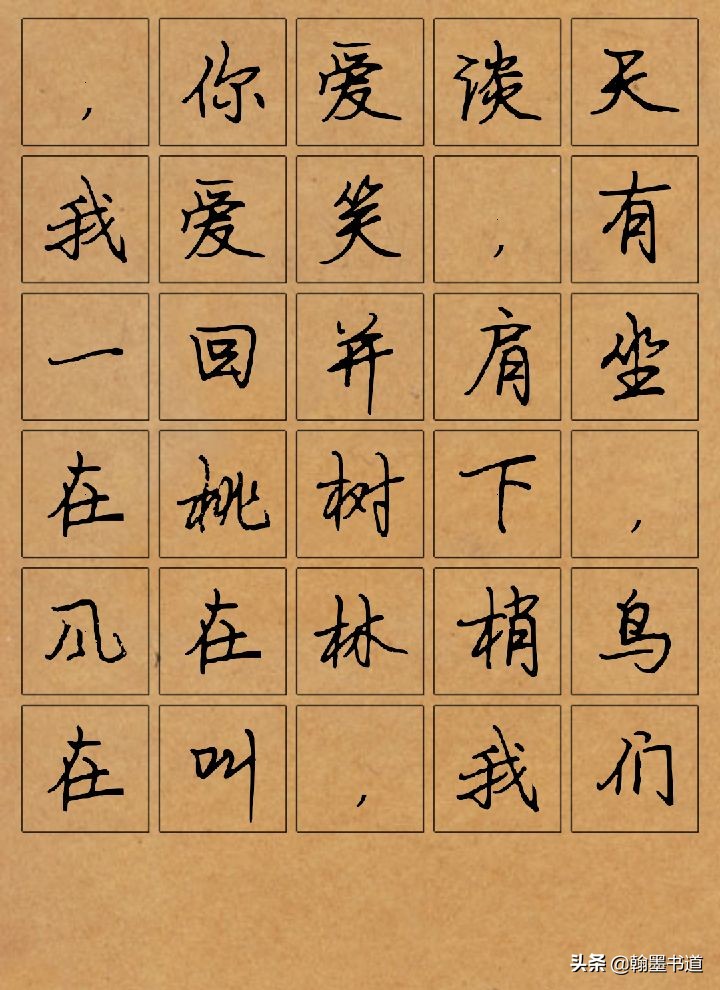 ，你爱谈天
我爱笑，有
一回并肩坐
在桃树下，
风在林梢鸟
在叫，我们
头条 @翰墨书道